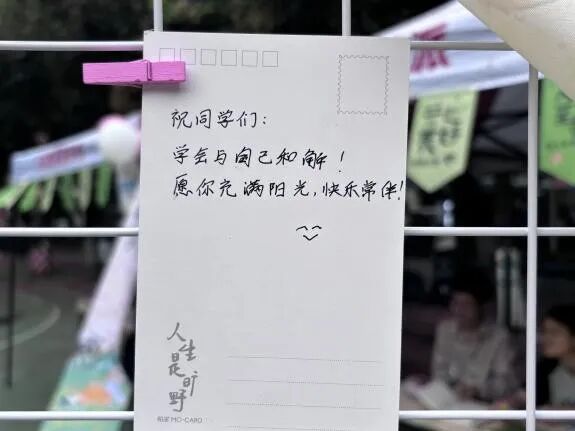 祝同学们：
学会与自己和解！
愿你充满阳光，快乐常伴！
人生是旷野
派